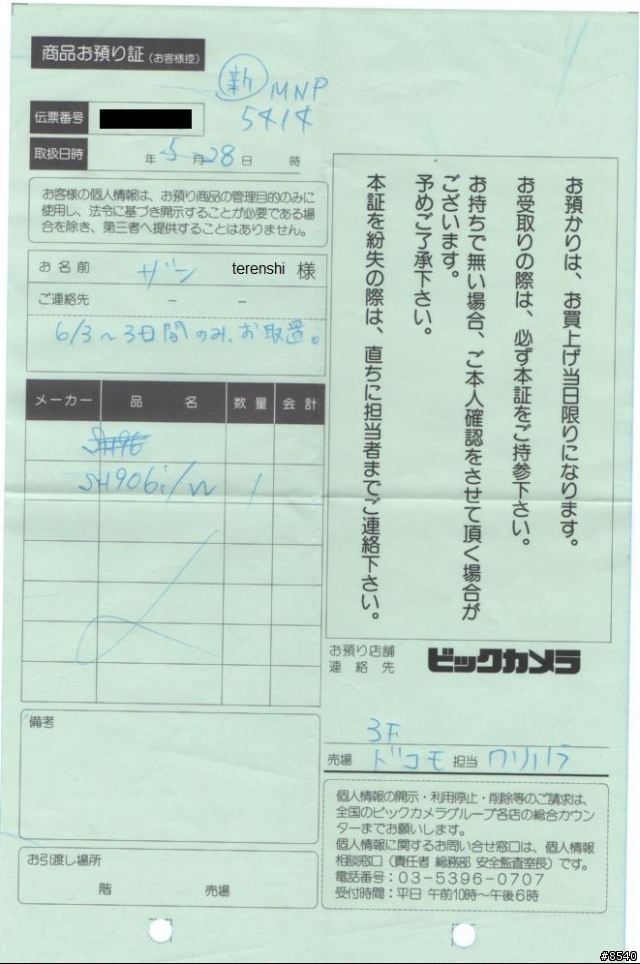 商品お預り証（お客様控）
新 MNP
伝票番号
取扱日時 年 5月28日 時
お客様の個人情報は、お預り商品の管理目的のみに
使用し、法令に基づき開示することが必要である場
合を除き、第三者へ提供することはありません。
お名前 terenshi 様
ご連絡先 － －
6/3～3日間のみ、お取置。
メーカー 品名 数量 会計
SH906i/W 1
備考
お引渡し場所
階 売場
お預かりは、お買上げ当日限りになります。
お受取りの際は、必ず本証をご持参下さい。
お持ちで無い場合、ご本人確認をさせて頂く場合が
ございます。
予めご了承下さい。
本証を紛失の際は、直ちに担当者までご連絡下さい。
お預り店舗
連絡先
ビックカメラ
3F
売場 ドコモ 担当
個人情報の開示・利用停止・削除等のご請求は、
全国のビックカメラグループ各店の総合カウン
ターまでお願いします。
個人情報に関するお問い合せ窓口は、個人情報
相談窓口（責任者 総務部 安全監査室長）です。
電話番号：03-5396-0707
受付時間：平日 午前10時～午後6時
#8540